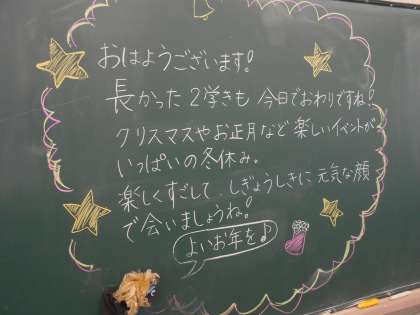 おはようございます!
長かった2学きも 今日でおわりですね!
クリスマスやお正月など楽しいイベントが
いっぱいの冬休み。
楽しくすごして、しぎょうしきに 元気な顔
で会いましょうね!
よいお年を♪